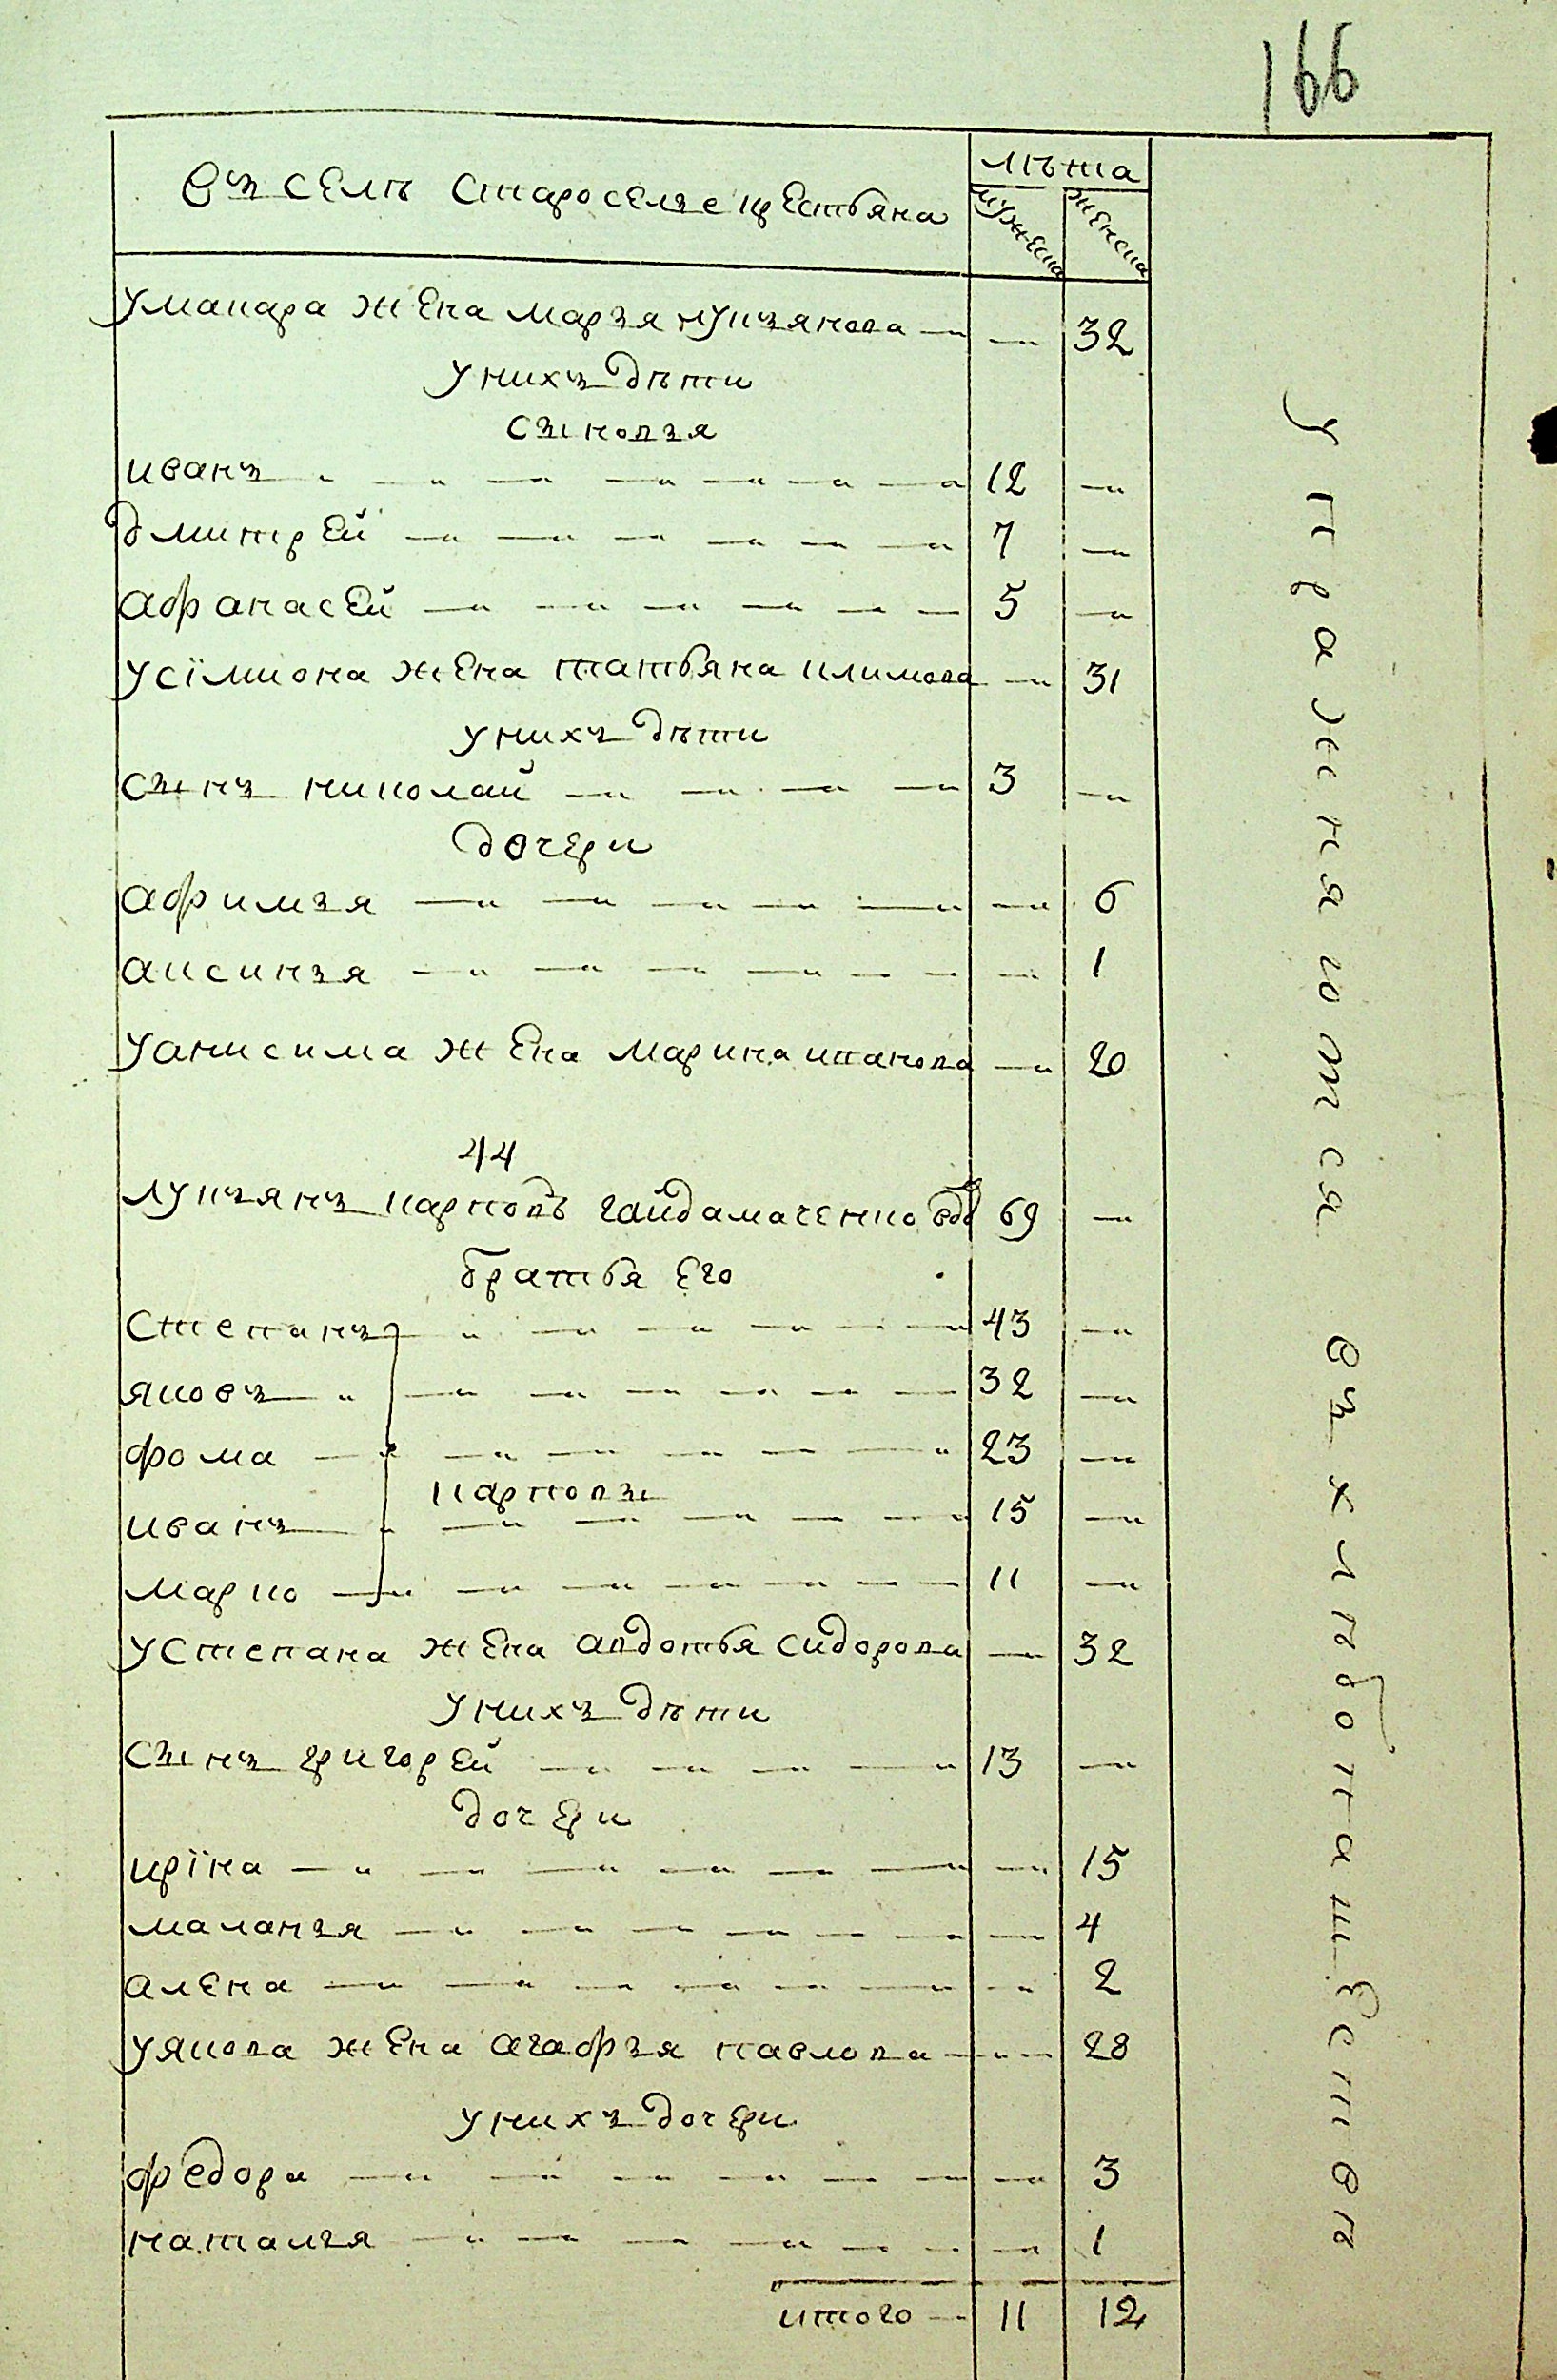 166
въ селѣ староселье крестьяна
лѣта
мужеска
женска
у макара жена марья лукьянова — 32
у нихъ дѣти
сыновья
иванъ — 12 —
дмитрей — 7 —
афанасей — 5 —
у сїмиона жена татьяна климова — 31
у нихъ дѣти
сынъ николай — 3 —
дочери
афимья — 6
аксинья — 1
у анисима жена марина иванова — 20
44
лукьянъ карповъ гайдамаченко вдв 69 —
братья его
степанъ — 43 —
яковъ — 32 —
фома — 23 —
карповы
иванъ — 15 —
марко — 11 —
у степана жена авдотья сидорова — 32
у нихъ дѣти
сынъ григорей — 13 —
дочери
ирїна — 15
маланья — 4
алена — 2
у якова жена агафья павлова — 28
у нихъ дочери
федора — 3
наталья — 1
итого — 11 12
упражняются въ хлебопашестве